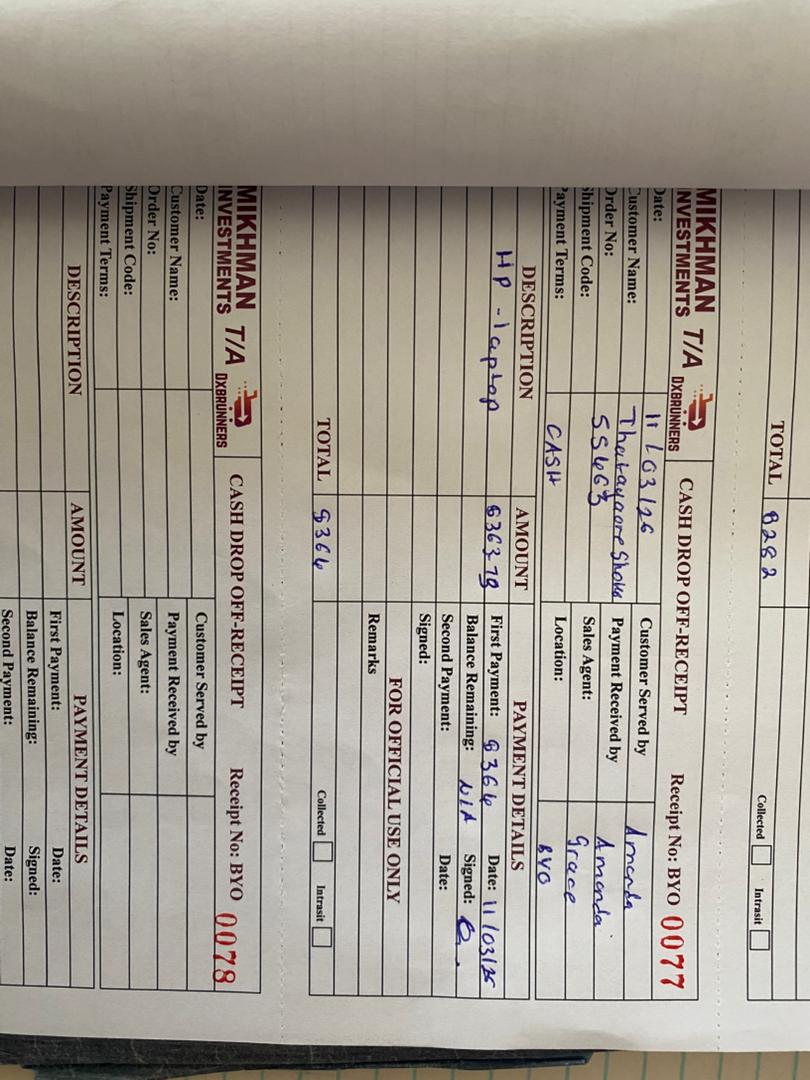 TOTAL $282
Collected Intrasit
MIKHMAN T/A
INVESTMENTS DXBRUNNERS
CASH DROP OFF-RECEIPT Receipt No: BYO 0077
Date: 11/03/26 Customer Served by Amanda
Customer Name: Payment Received by Amanda
Order No: 55463 Sales Agent: Grace
Shipment Code: Location: BYO
Payment Terms: CASH
DESCRIPTION AMOUNT PAYMENT DETAILS
HP - laptop $363.79 First Payment: $364 Date: 11/03/26
Balance Remaining: N/A Signed:
Second Payment: Date:
Signed:
FOR OFFICIAL USE ONLY
Remarks
TOTAL $364
Collected Intrasit
MIKHMAN T/A
INVESTMENTS DXBRUNNERS
CASH DROP OFF-RECEIPT Receipt No: BYO 0078
Date: Customer Served by
Customer Name: Payment Received by
Order No: Sales Agent:
Shipment Code: Location:
Payment Terms:
DESCRIPTION AMOUNT PAYMENT DETAILS
First Payment: Date:
Balance Remaining: Signed:
Second Payment: Date: